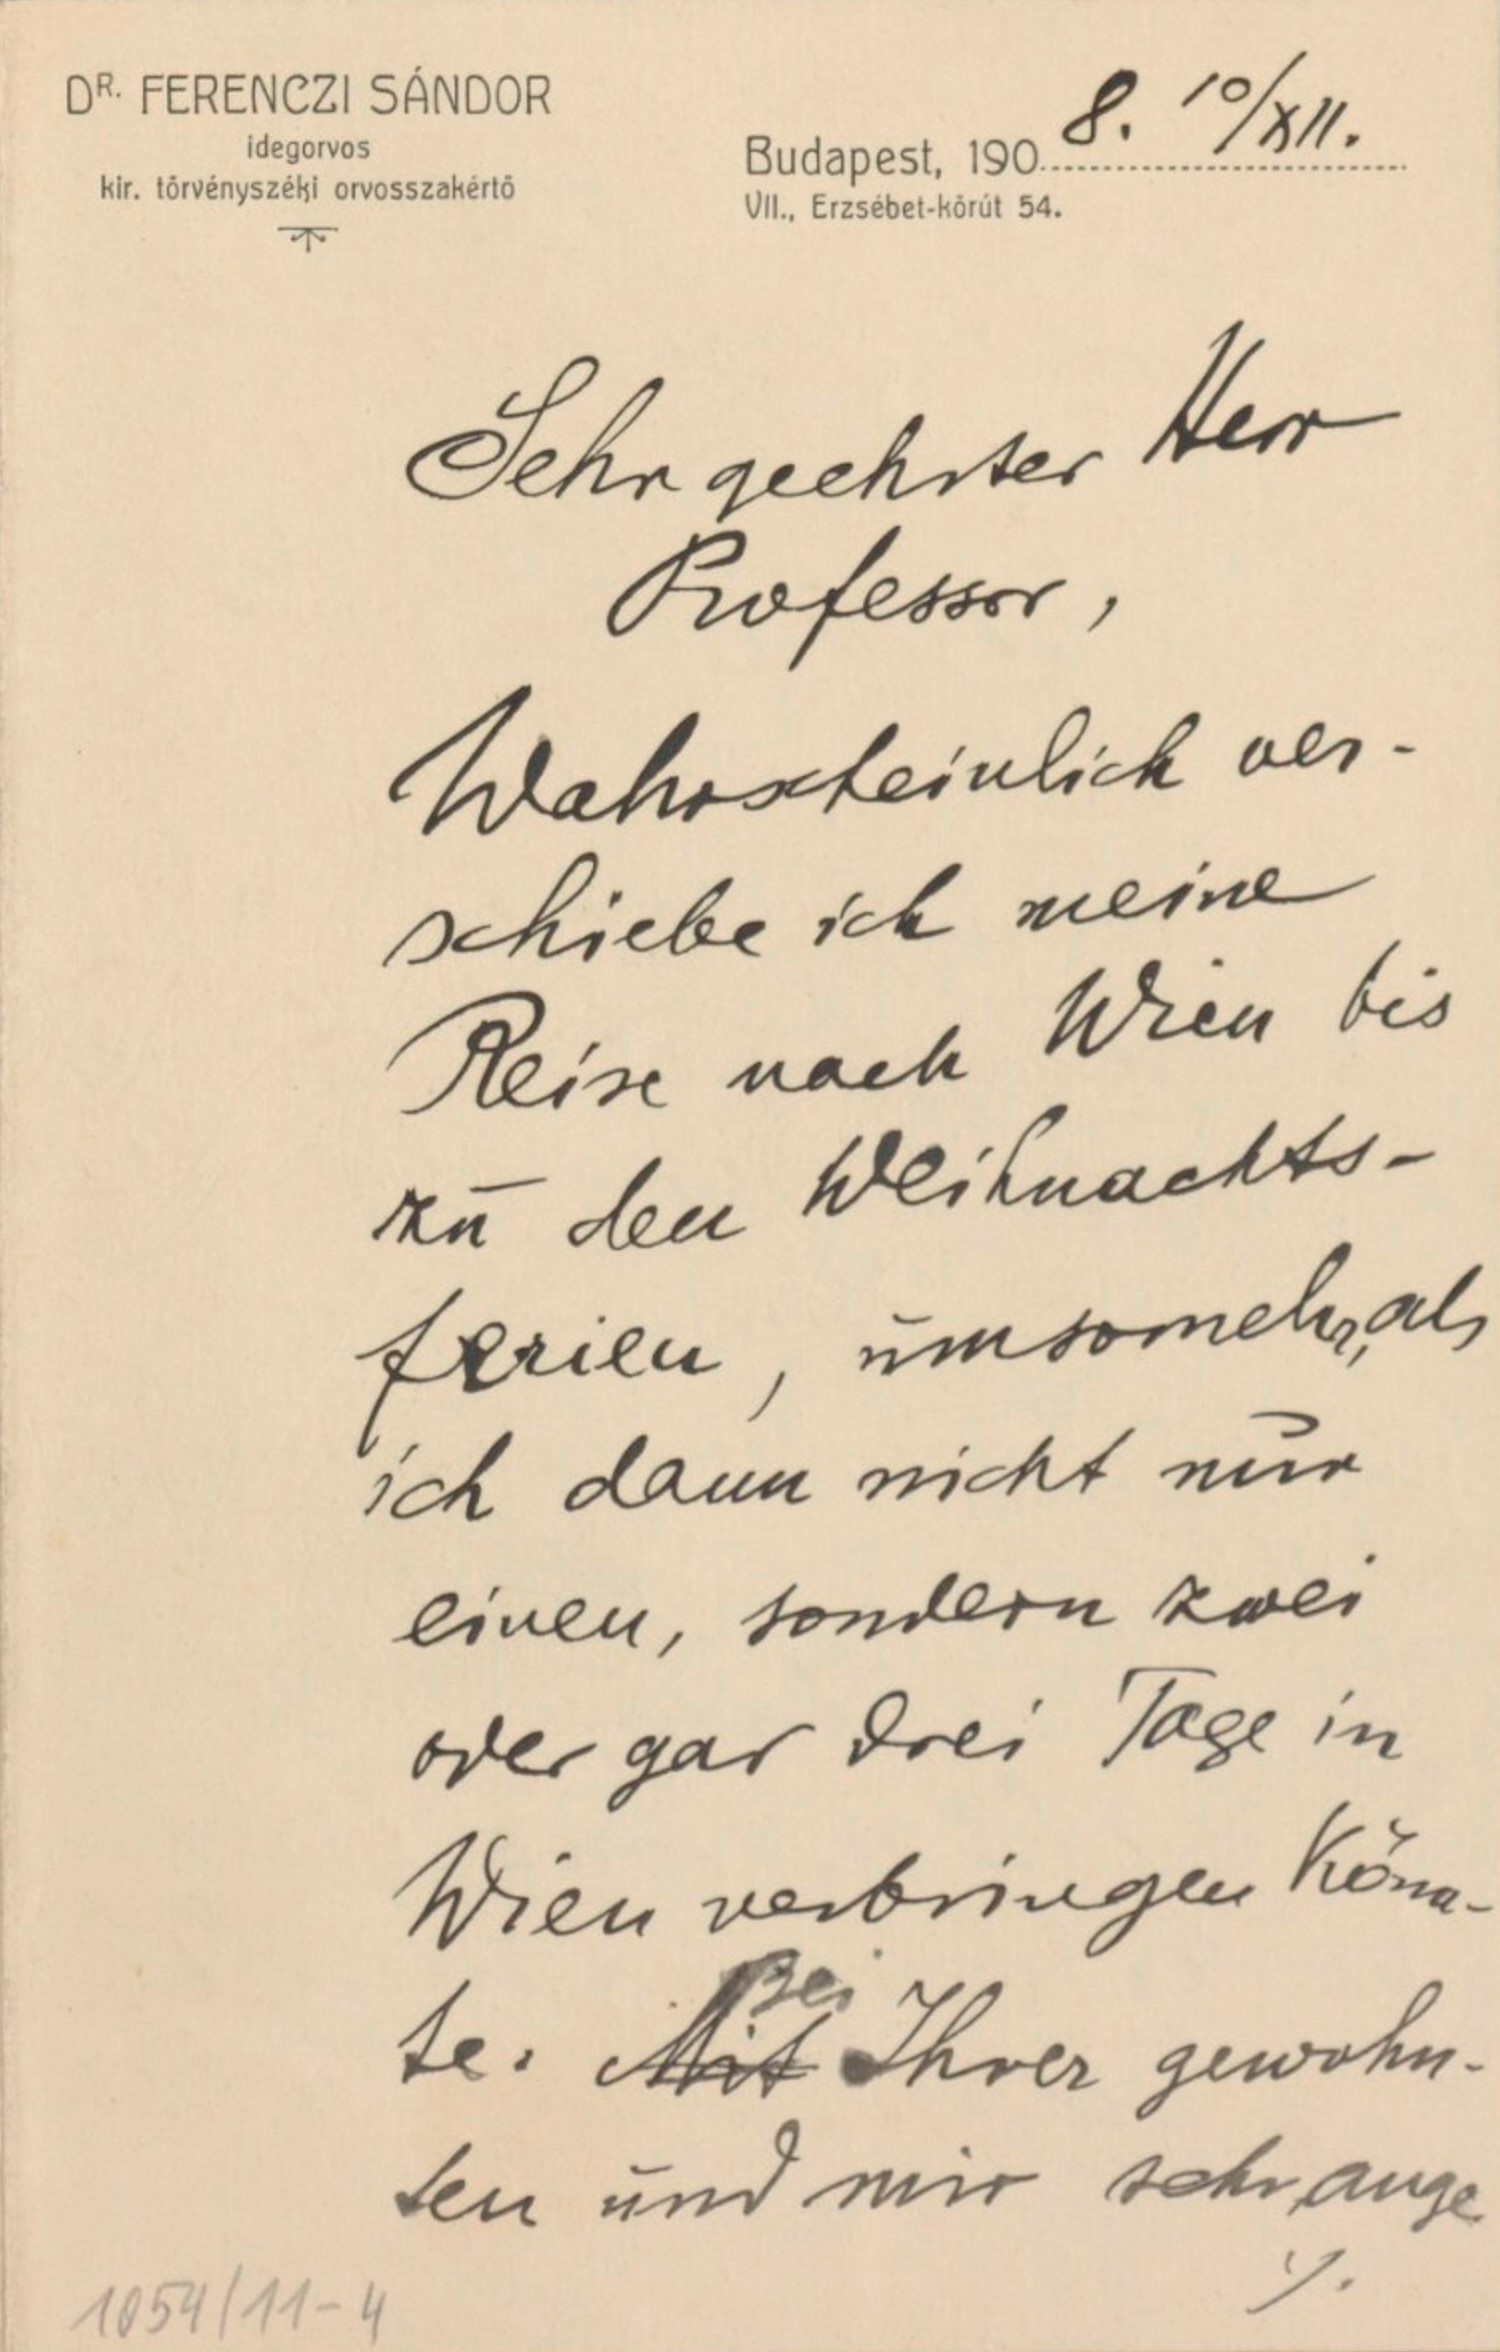 DR. FERENCZI SÁNDOR
idegorvos
kir. törvényszéki orvosszakértő
Budapest, 1908. 10/XII.
VII., Erzsébet-körút 54.
Sehr geehrter Herr
Professor,
Wahrscheinlich ver-
schiebe ich meine
Reise nach Wien bis
zu den Weihnachts-
ferien, umsomehr, als
ich dann nicht nur
einen, sondern zwei
oder gar drei Tage in
Wien verbringen könn-
te. Mit Bei Ihrer gewohn-
ten und mir sehr ange
./.
1054/11-4